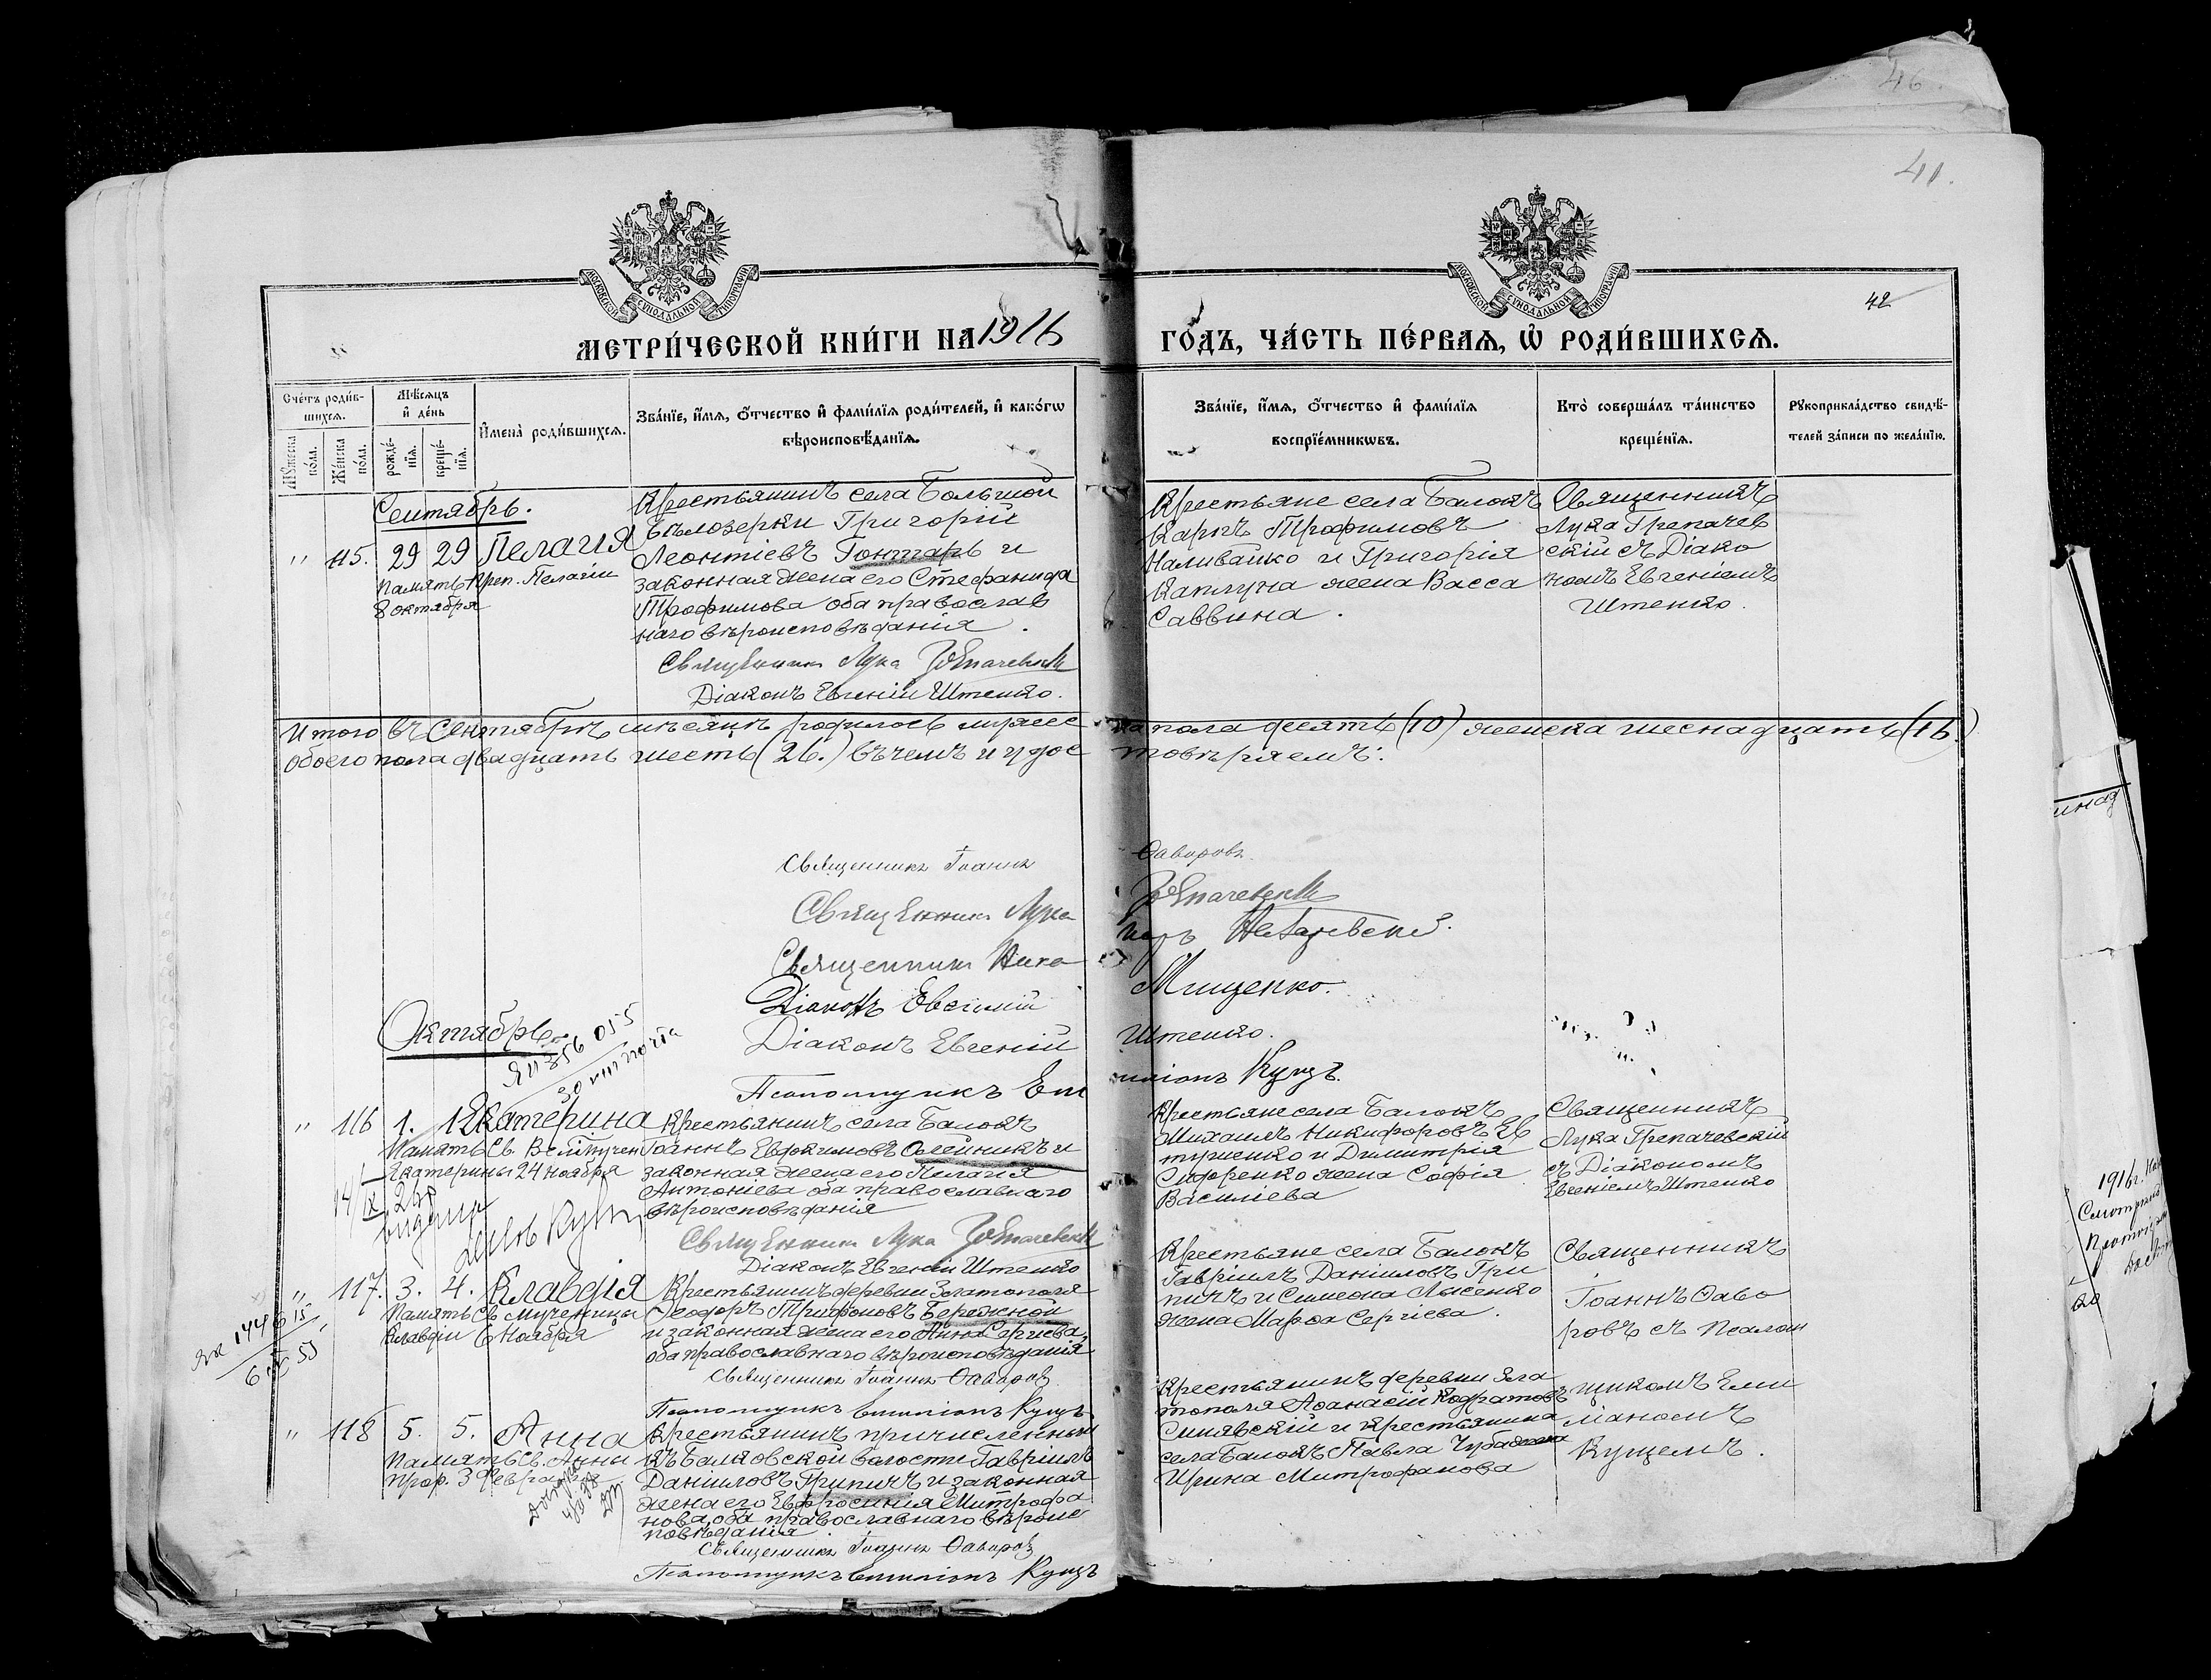 46.
41.
42
МОСКОВСКОЙ СѴНОДАЛЬНОЙ ТИПОГРАФІИ
МОСКОВСКОЙ СѴНОДАЛЬНОЙ ТИПОГРАФІИ
МЕТРИ́ЧЕСКОЙ КНИ́ГИ НА 1916 ГО́ДЪ, ЧА́СТЬ ПЕ́РВАѦ, Ѽ РОДИ́ВШИХСѦ.
Сче́тъ роди́в-
шихсѧ.
Мꙋ́жеска по́ла.
Же́нска по́ла.
Мѣ́сѧцъ
и҆ де́нь
рожде́-
нїѧ.
креще́-
нїѧ.
И҆мена̀ роди́вшихсѧ.
Зва́нїе, и҆́мѧ, о҆́тчество и҆ фами́лїѧ роди́телей, и҆ како́гѡ
вѣроисповѣ́данїѧ.
Зва́нїе, и҆́мѧ, о҆́тчество и҆ фами́лїѧ
воспрїе́мникѡвъ.
Кто̀ соверша́лъ та́инство
креще́нїѧ.
Рꙋкоприкла́дство свидѣ́-
телей за́писи по жела́нїю.
Сентябрь.
" 115. 29 29 Пелагия
Память Преп. Пелагіи
8 октября
Крестьянинъ села Большой
Бѣлозерки Григорій
Леонтіевъ Гонтарь и
законная жена его Стефанида
Трофимова оба православ
наго вѣроисповѣданія.
Священникъ Лука Грепачевскій
Діаконъ Евгеній Штенко.
Крестьяне села Балокъ
Карпъ Трофимовъ
Наливайко и Григорія
Каплуна жена Васса
Саввина.
Священникъ
Лука Грепачев
скій съ Діако
номъ Евгеніемъ
Штенко.
Итого въ Сентябрѣ мѣсяцѣ родилось мужес на пола десять (10) женска шеснадцать (16.)
обоего пола двадцать шесть (26.) въ чемъ и удос товѣряемъ:
Священникъ Іоаннъ Ѳаворовъ.
Священникъ Лука Грепачевскій
Священникъ Ника
Діаконъ Евѳимій Мищенко.
Діаконъ Евгеній Штенко.
Псаломщикъ Еми ліанъ Кущъ.
Октябрь.
" 116 1. 1. Екатерина
Память Св. Великомучен
Екатерины 24 ноября
Крестьянинъ села Балокъ
Іоаннъ Евфимовъ Олейникъ и
законная жена его Пелагія
Антоніева оба православнаго
вѣроисповѣданія
Священникъ Лука Грепачевскій
Діаконъ Евгеній Штенко
Крестьяне села Балокъ
Михаилъ Никифоровъ Ев
тушенко и Димитрія
Сидоренко жена Софія
Василіева
Священникъ
Лука Грепачевскій
съ Діакономъ
Евгеніемъ Штенко
" 117. 3. 4. Клавдія
Память Св. Мученицы
Клавдіи 6 Ноября
Крестьянинъ деревни Златополя
Ѳеодоръ Трифоновъ Бережной
и законная жена его Анна Сергіева,
оба православнаго вѣроисповѣданія
Священникъ Іоаннъ Ѳаворовъ
Псаломщикъ Емиліанъ Кущъ
Крестьяне села Балокъ
Гавріилъ Даніиловъ Гри
пичъ и Симеона Лысенко
жена Марѳа Сергіева.
Священникъ
Іоаннъ Ѳаво
ровъ съ Псалом
щикомъ Еми
ліаномъ
Кущемъ.
" 118 5. 5. Анна
Память Св. Анны
прор. 3 Февраля
Крестьянинъ причисленный
къ Балковской волости Гавріилъ
Даніиловъ Грипичъ и законная
жена его Евфросинія Митрофа
нова, оба православнаго вѣроис
повѣданія
Священникъ Іоаннъ Ѳаворовъ
Псаломщикъ Емиліанъ Кущъ
Крестьянинъ деревни Зла
тополя Аѳанасій Кодратовъ
Синявскій и крестьянина
села Балокъ Павла
Ирина Митрофанова
1916г.